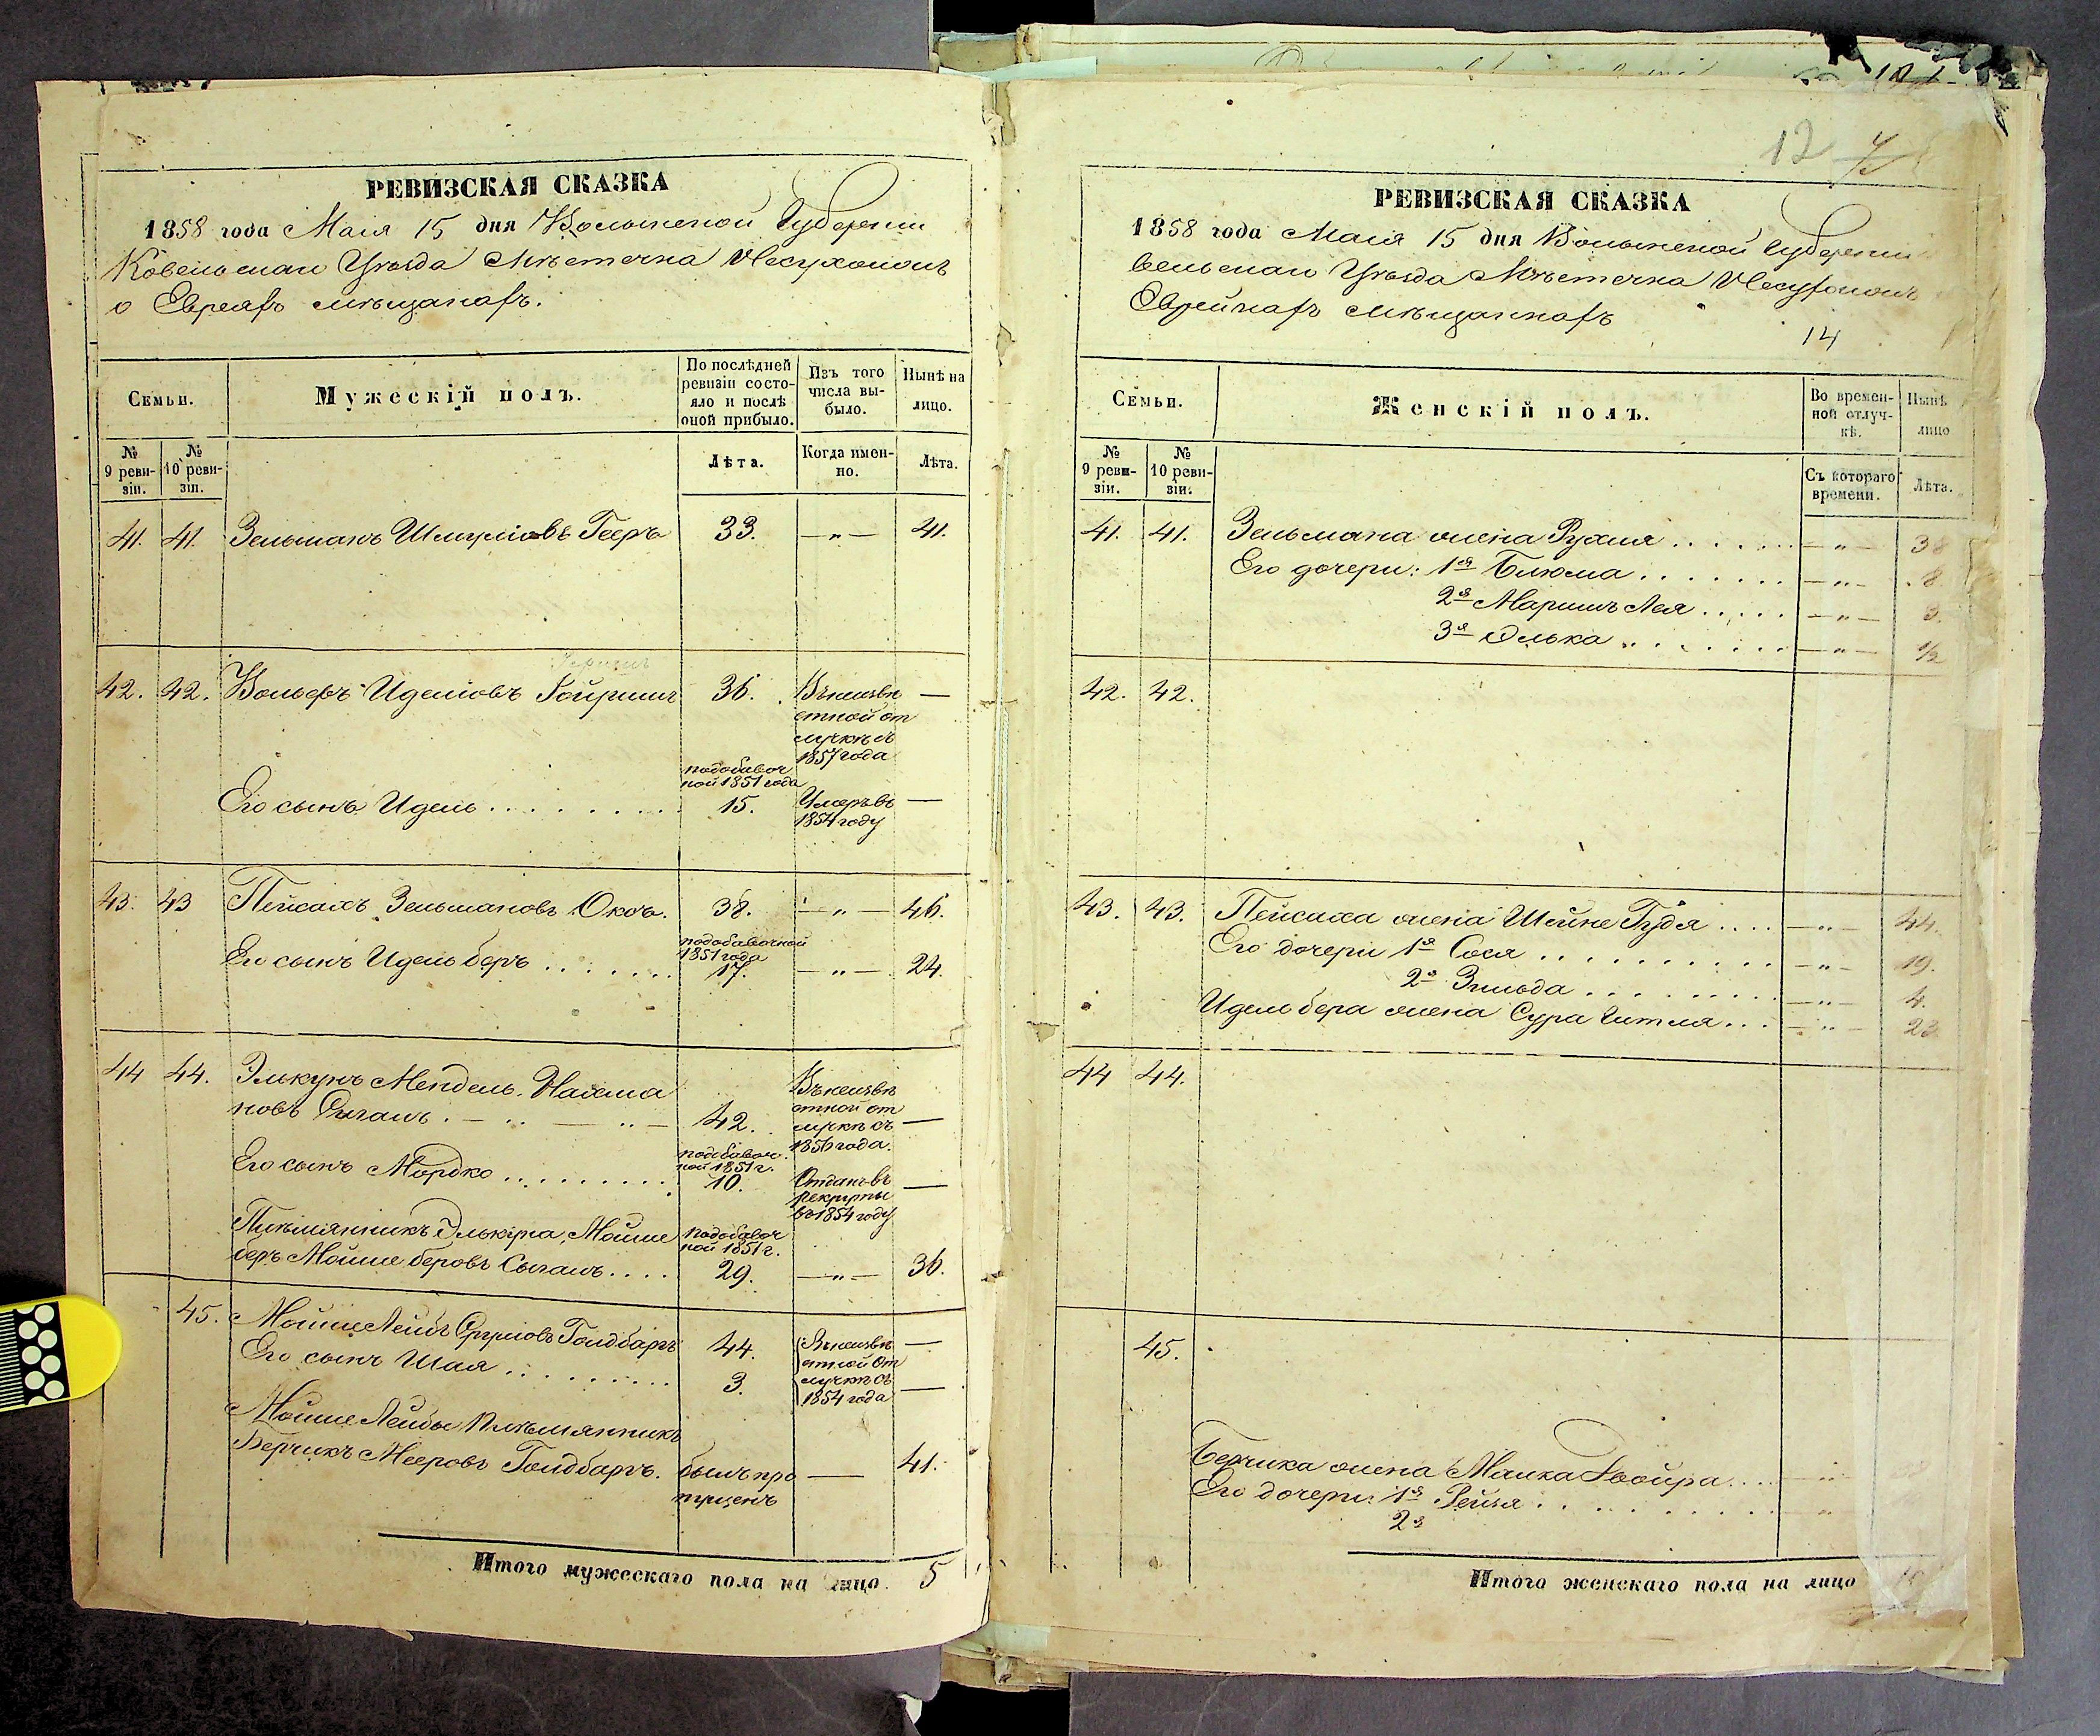 РЕВИЗСКАЯ СКАЗКА
1858 года Маія 15 дня Волынской Губерніи
Ковельскаго Уѣзда Мѣстечка Несухоижъ
о Евреяхъ мѣщанахъ.
Семьи.
Мужескій полъ.
По послѣдней ревизіи состояло и послѣ оной прибыло.
Изъ того числа выбыло.
Нынѣ на лицо.
№ 9 ревизіи.
№ 10 ревизіи.
Лѣта.
Когда именно.
Лѣта.
41. 41. Зельманъ Шмуліовъ Гееръ 33. — „ — 41.
42. 42. Вольфъ Иделіовъ Гойришъ 36. Въ неизвѣ
стной от
лучкѣ съ
1857 года —
Его сынъ Идель . . . . . . . . .
подобавоч
ной 1851 года
15.
Умеръ въ
1854 году —
43. 43 Пейсахъ Зельмановъ Оксъ. 38. — „ — 46.
Его сынъ Идель беръ . . . . . . .
подобавочной
1851 года
17. — „ — 24.
44 44. Элькунъ Мендель Нахма
новъ Цыганъ. — „ — „ — 42.
Въ неизвѣ
стной от
лучкѣ съ
1856 года. —
Его сынъ Мордко . . . . . . . . .
подобавоч
ной 1851 г.
10.
Отданъ въ
рекруты
въ 1854 году —
Племянникъ Элькуна, Мошке
беръ Мошке беровъ Цыганъ. . . .
подобавоч
ной 1851 г.
29. — „ — 36.
45. Мошке Лейбъ Сруліовъ Голдбаргъ 44.
Его сынъ Шая . . . . . . . . . 3.
Въ неизвѣ
стной от
лучкѣ съ
1854 года
—
—
Мошке Лейбы племянникъ
Берчикъ Мееровъ Голдбаргъ. былъ про
пущенъ — 41.
Итого мужескаго пола на лицо. 5
12
РЕВИЗСКАЯ СКАЗКА
1858 года Маія 15 дня Волынской Губерніи
вельскаго Уѣзда Мѣстечка Несухоижъ
Еврейкахъ мѣщанкахъ
14
Семьи.
Женскій полъ.
Во временной отлучкѣ.
Нынѣ
лицо
№ 9 ревизіи.
№ 10 ревизіи.
Съ котораго времени.
Лѣта.
41. 41. Зельмана жена Рухля . . . . . . — „ — 38
Его дочери: 1я Блюма . . . . . . . — „ — 8
2я Маришъ Лея . . . . . — „ — 3.
3я Элька . . . . . . . — „ — 1/2
42. 42.
43. 43. Пейсаха жена Шейне Гудя . . . . — „ — 44.
Его дочери 1я Сося . . . . . . . . . . — „ — 19.
2я Зильда . . . . . . . . . — „ — 4.
Идель бера жена Сура Гитля . . . — „ — 23
44 44.
45.
Берчика жена Малка Двойра . . . — „ —
Его дочери: 1я Рейзя . . . . . . . . . . „
2я
Итого женскаго пола на лицо